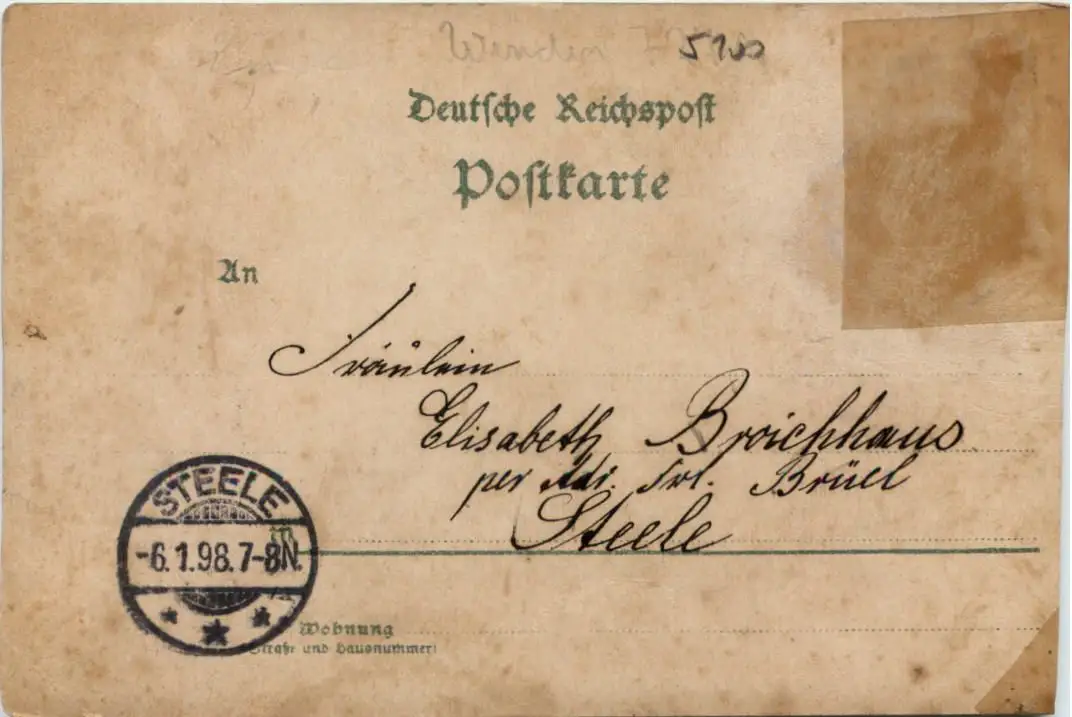 5100
Deutsche Reichspost
Postkarte
An
Fräulein
Elisabeth Broichhaus
per Adr. Frl. Brüel
Steele
STEELE
-6.1.98.7-8N.
in
Wohnung
(Straße und Hausnummer)